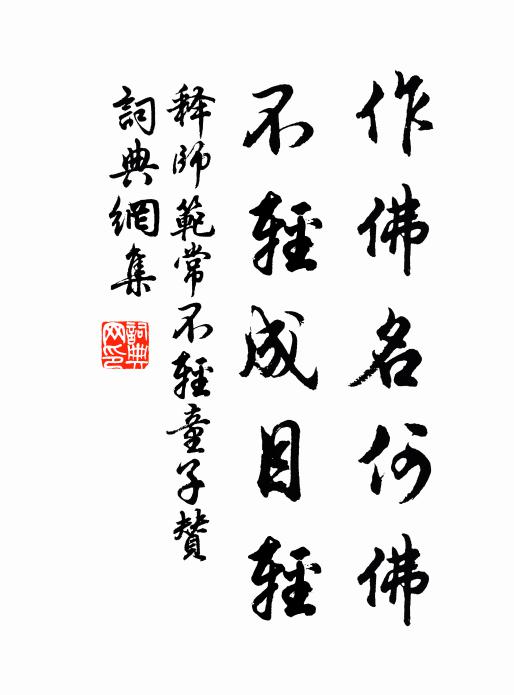 作佛名何佛
不輕成目輕
释師範常不輕童子贊
詞典網集
詞典网印